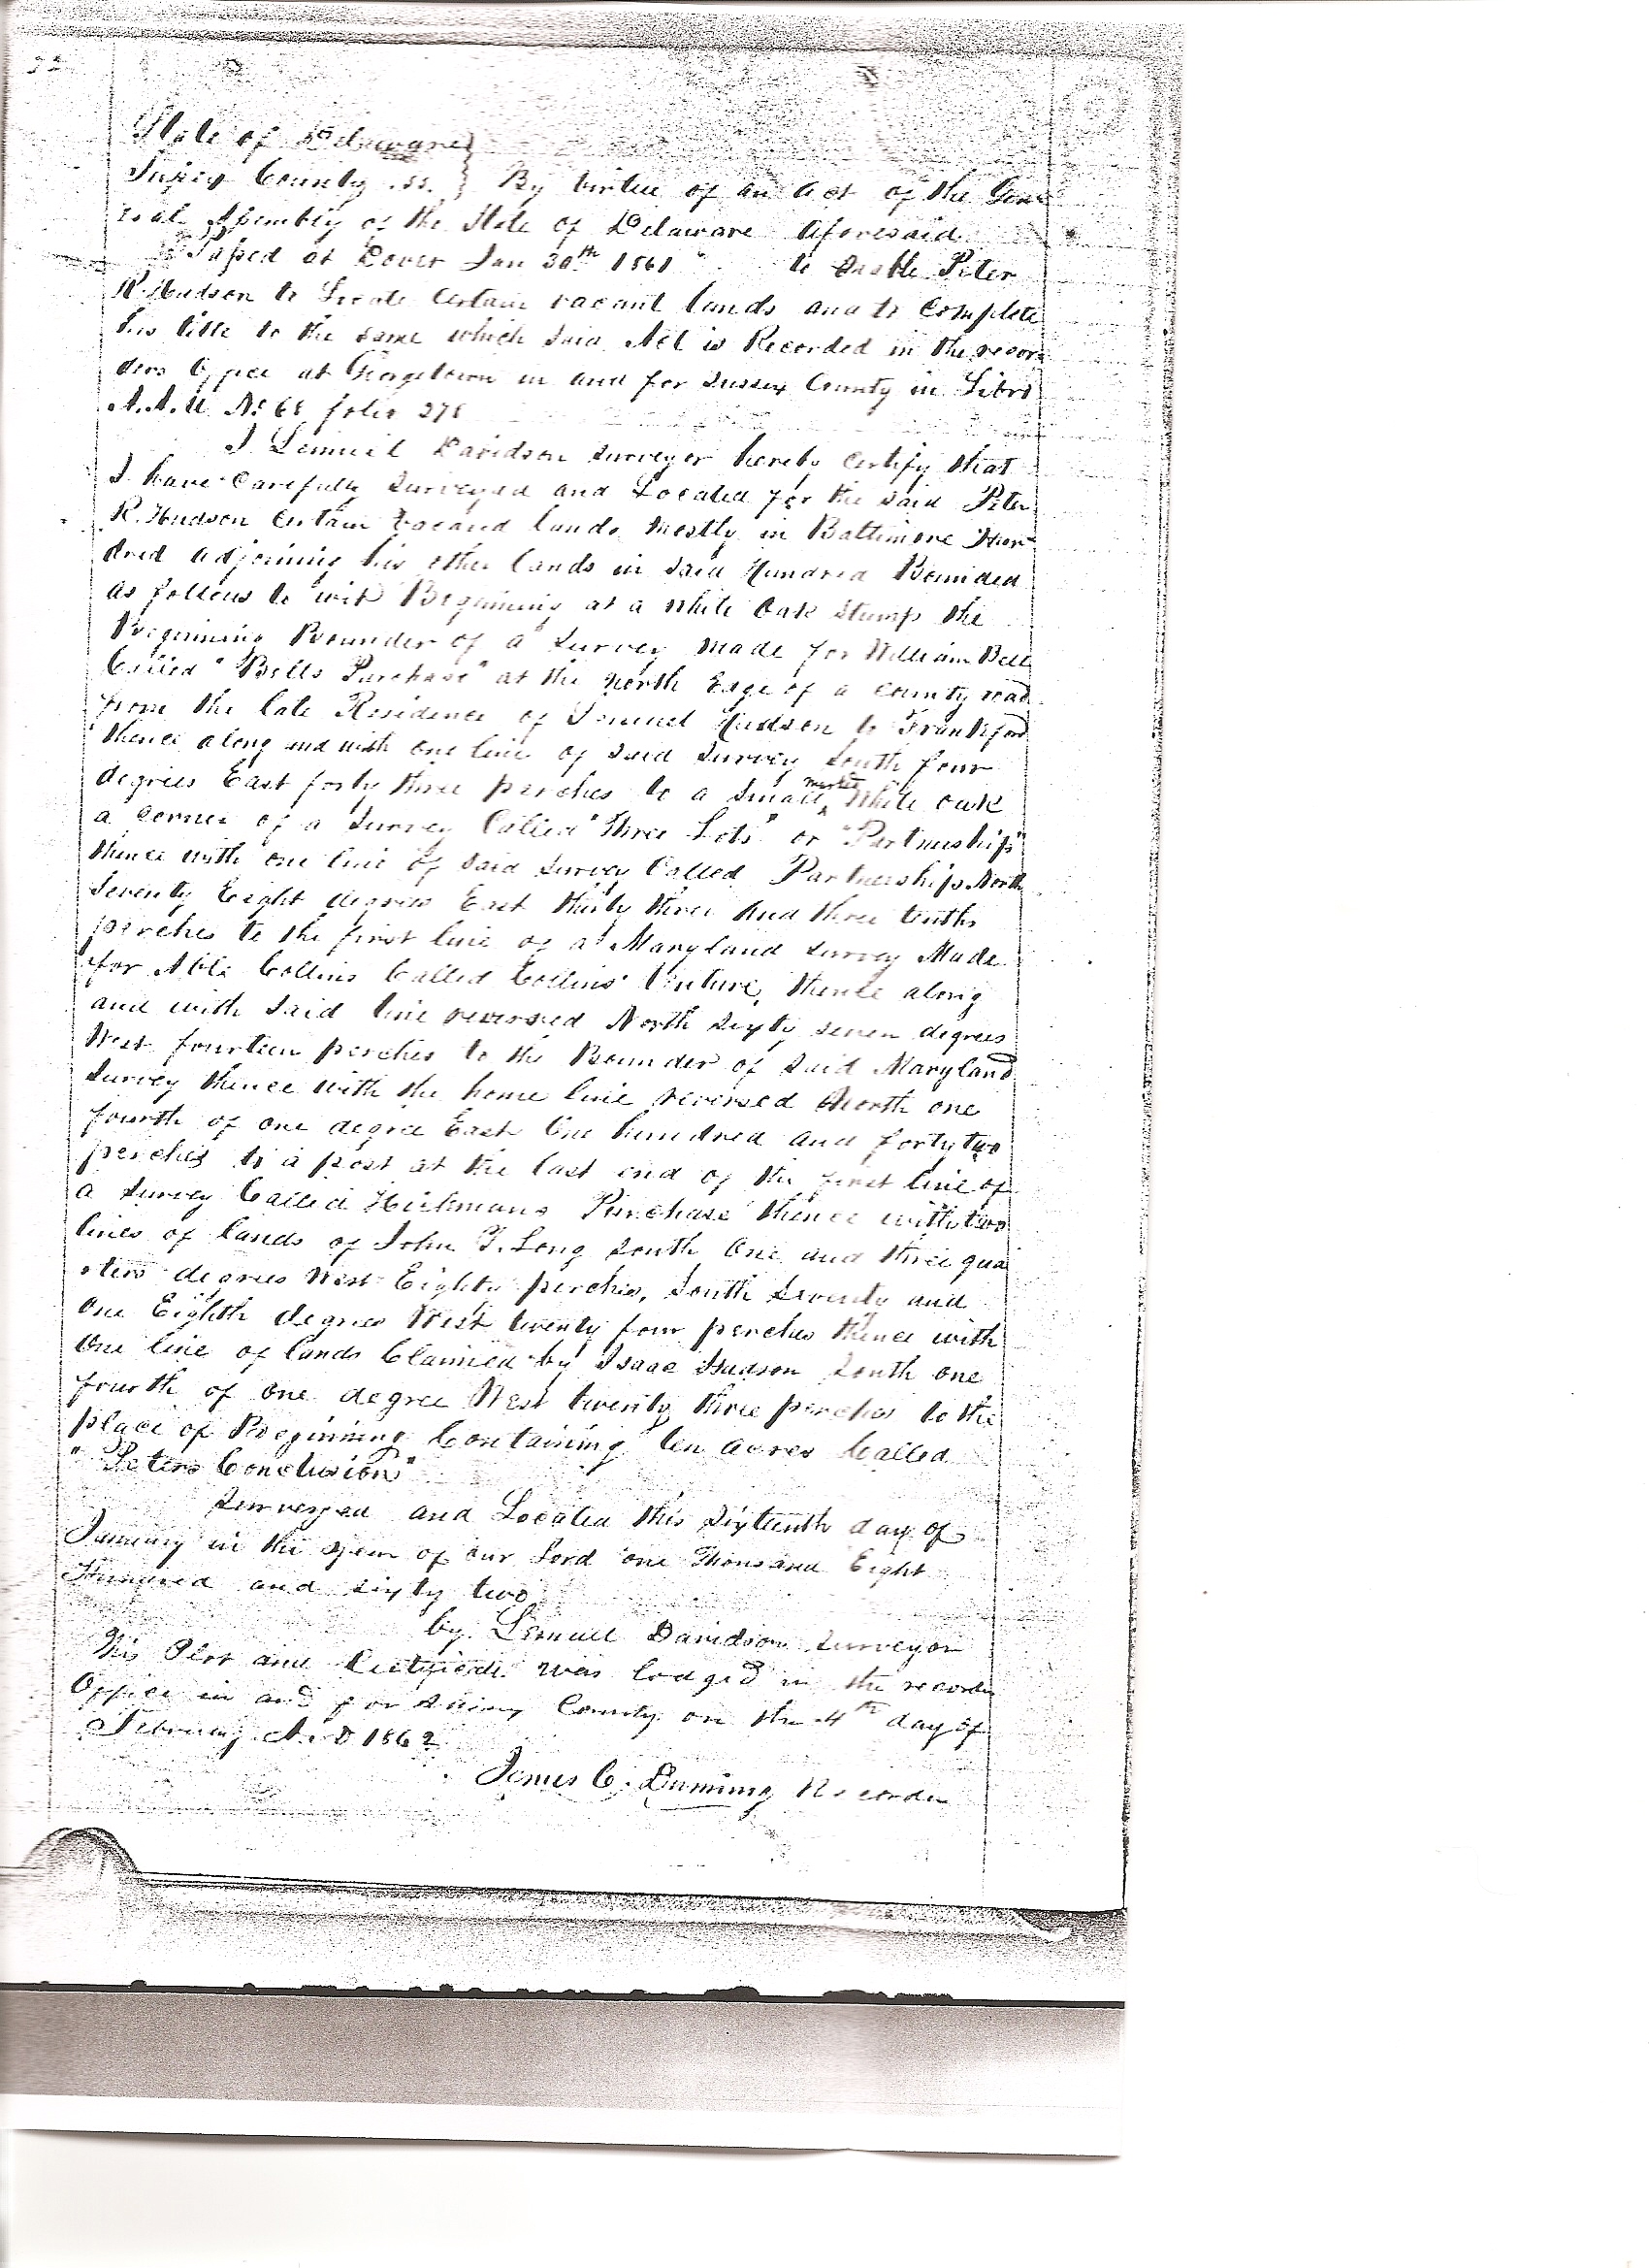 State of Delaware }
Sussex County .ss. } By virtue of an act of the Gen
eral Assembly of the State of Delaware aforesaid
"Passed at Dover Jan 30th 1861" to Enable Peter
R. Hudson to Locate Certain vacant lands and to Complete
his title to the same which said Act is Recorded in the recor
ders Office at Georgetown in and for Sussex County in Libro
No 68 folio 278
I Lemuel Davidson Surveyor hereby Certify that
I have Carefully Surveyed and Located for the said Peter
R. Hudson Certain lands mostly in Baltimore Hun
dred adjoining his other lands in said Hundred Bounded
as follows to wit Beginning at a White Oak Stump the
Beginning Bounder of a Survey made for William Bell
Called "Bells Purchase" at the North Edge of a County road
from the late Residence of Hudson to Frankford
thence along and with one line of said Survey South four
degrees East forty three perches to a Small marked White oak
a corner of a Survey Called "Three Lots" or "Partnership"
thence with one line of said Survey Called Partnership North
Seventy Eight degrees East thirty three and three tenths
perches to the first line of a Maryland Survey Made
for Collins Called Collins Venture, thence along
and with said line reversed North Sixty seven degrees
West fourteen perches to the Bounder of said Maryland
Survey thence with the home line reversed North one
fourth of one degree East One hundred and forty two
perches to a post at the last end of the first line of
a Survey Called Hickmans Purchase thence with two
lines of lands of John Long South One and three qua
rters degrees West Eighty perches, South Seventy and
One Eighth degrees West twenty four perches thence with
One line of lands Claimed by Isaac Hudson South one
fourth of one degree West twenty three perches to the
place of Beginning Containing ten acres Called
"Peters Conclusion"
Surveyed and Located this Sixteenth day of
January in the year of our Lord one Thousand Eight
Hundred and Sixty two
by Lemuel Davidson Surveyor
This Plot and Certificate was lodged in the recorder
Office in and for Sussex County on the 4th day of
February A.D 1862
James C. Recorder